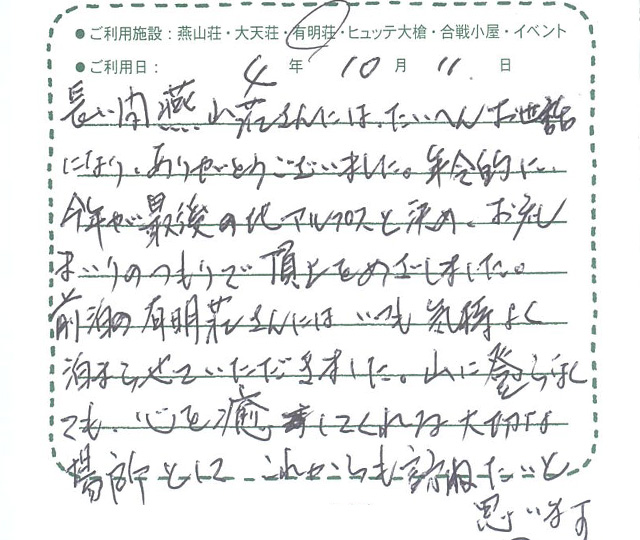 ● ご利用施設：燕山荘・大天荘・有明荘・ヒュッテ大槍・合戦小屋・イベント
● ご利用日： 4 年 10 月 11 日
長い間燕山荘さんには、たいへんお世話
になり、ありがとうございました。年令的に、
今年が最後の北アルプスと決め、お礼
まいりのつもりで頂上をめざしました。
前泊の有明荘さんにはいつも気持よく
泊まらせていただきました。山に登らなく
ても、心を癒してくれる大切な
場所として これからも訪ねたいと
思います